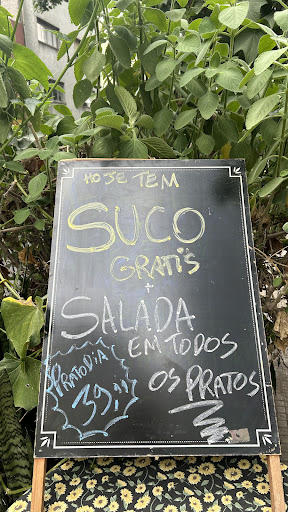 HOJE TEM
SUCO
GRATIS
+
SALADA
EM TODOS
OS PRATOS
PRATO DIA
39,